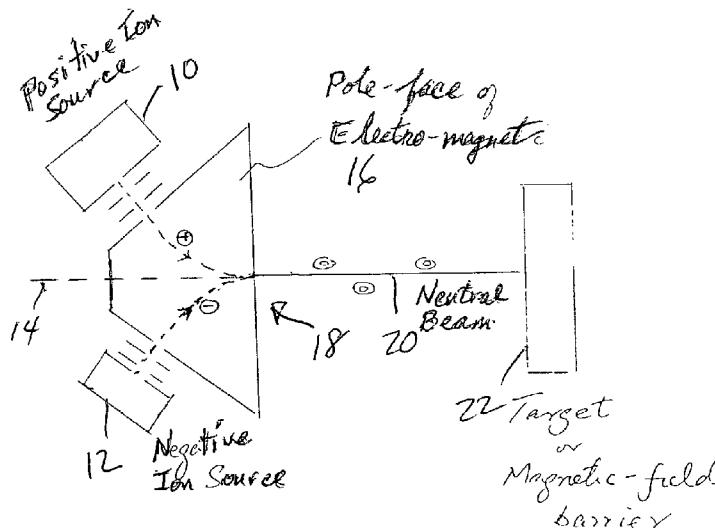 Positive Ion
Source
10
Pole-face of
Electro-magnetic
16
+
−
14
18
20
Neutral
Beam
12
Negative
Ion Source
22 Target
or
Magnetic-field
barrier